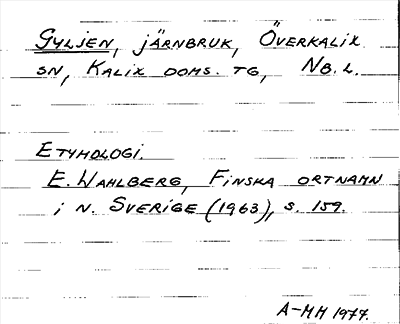 Gyljen, järnbruk, Överkalix
sn, Kalix doms. tg, Nb. l.
Etymologi.
E. Wahlberg, Finska ortnamn
i n. Sverige (1963), s. 159.
A-MM 1977.